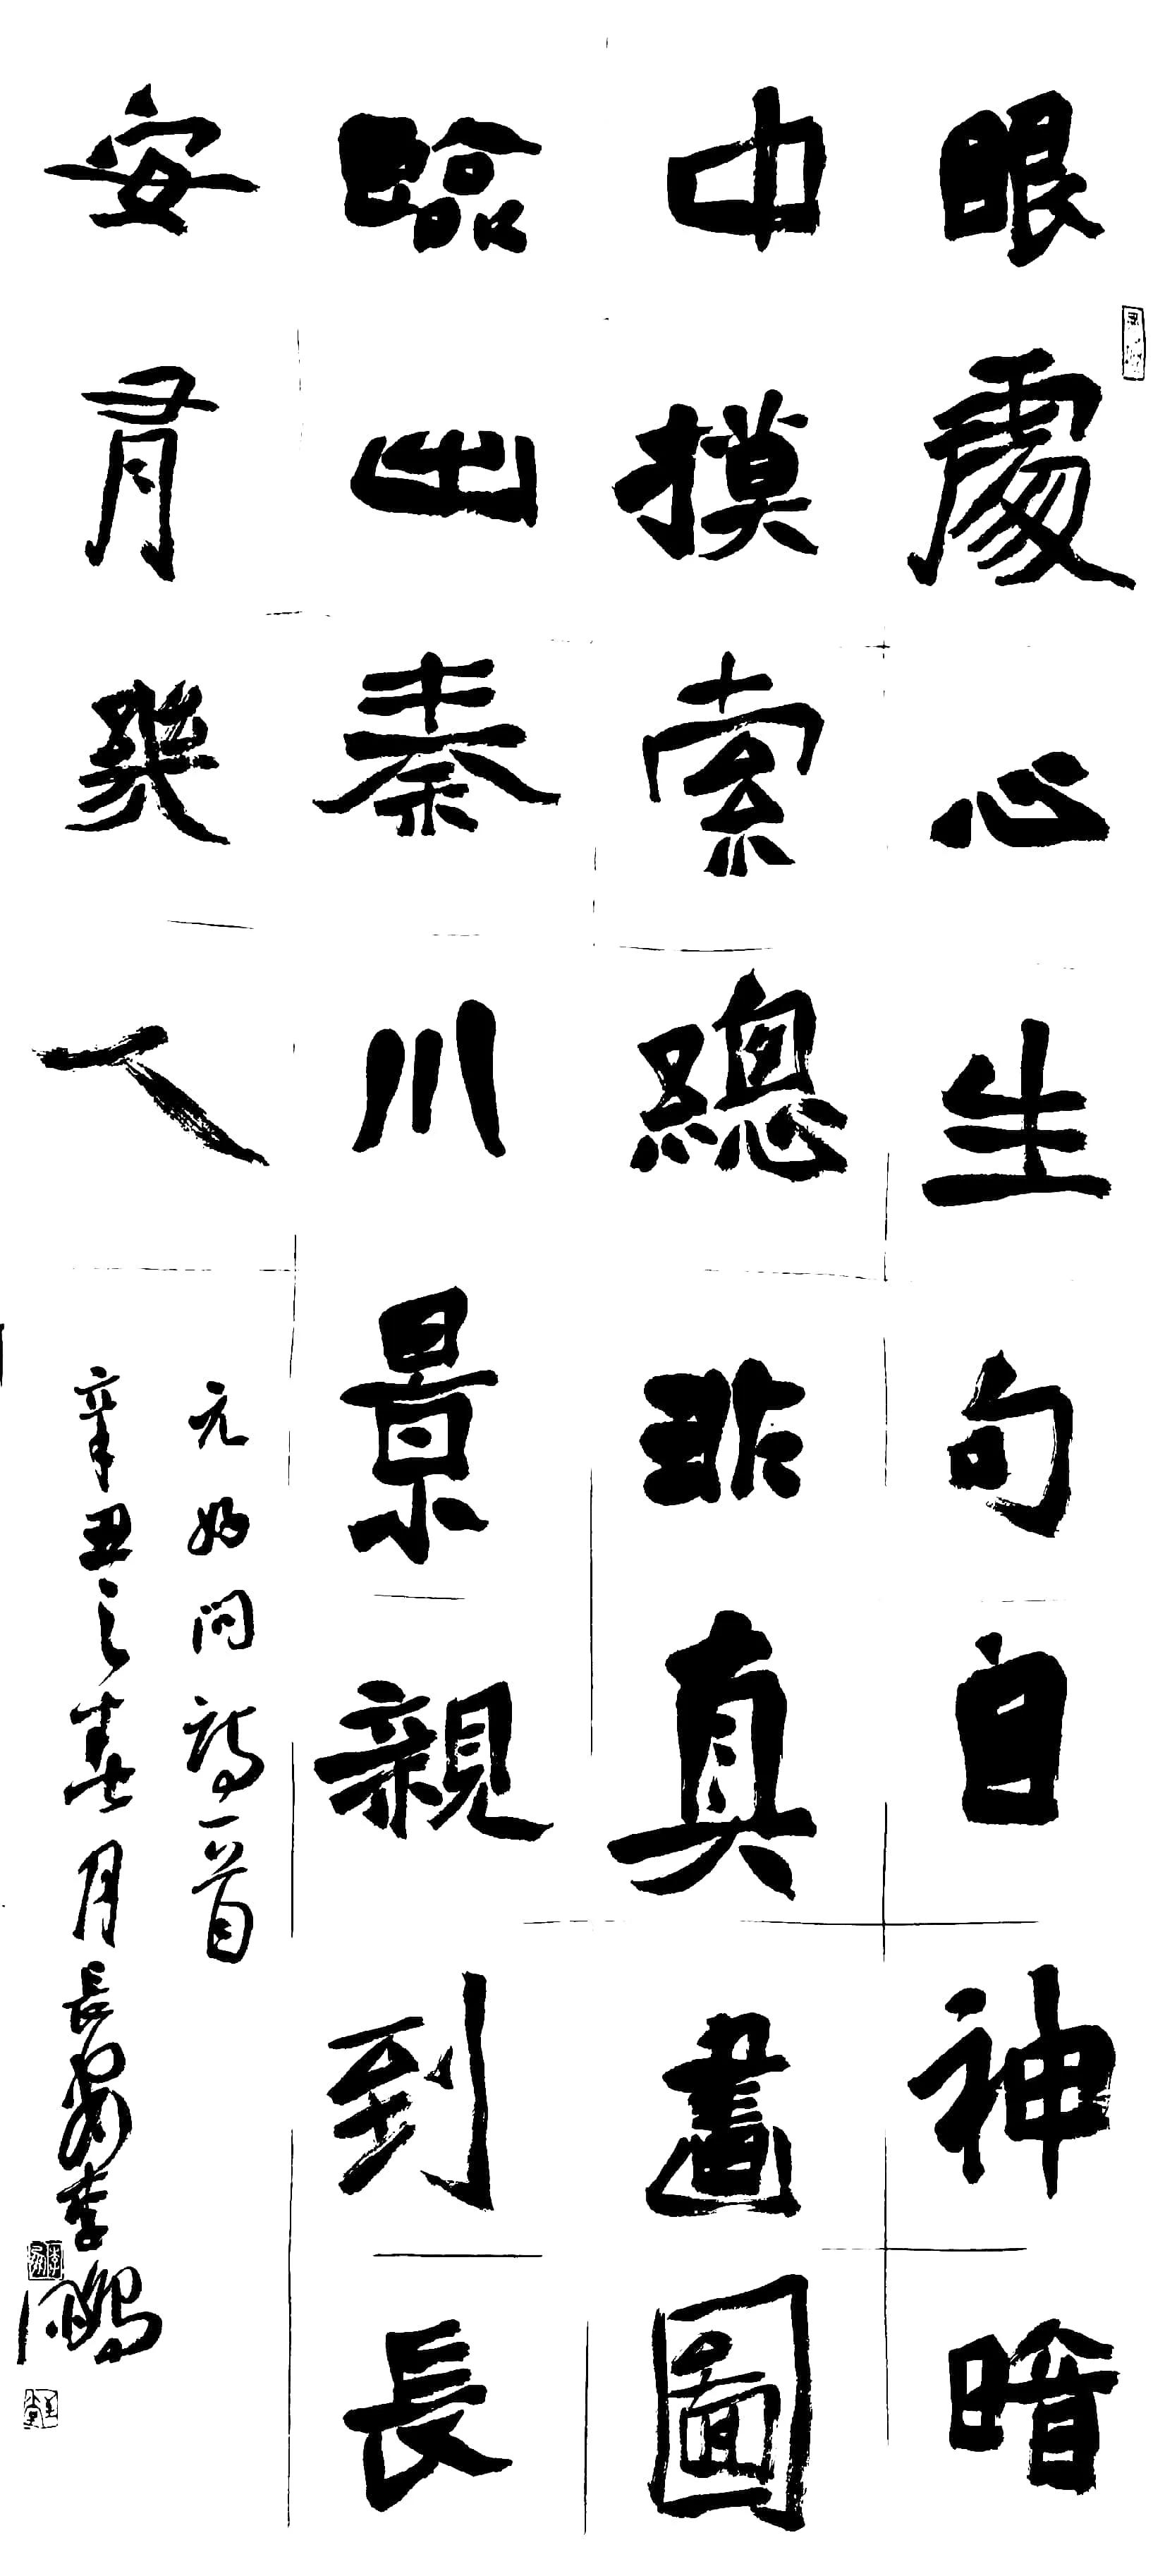 眼處心生句自神暗
中摸索總非真畫圖
臨出秦川景親到長
安有幾人
元好問詩一首
辛丑之春月長安李鵬